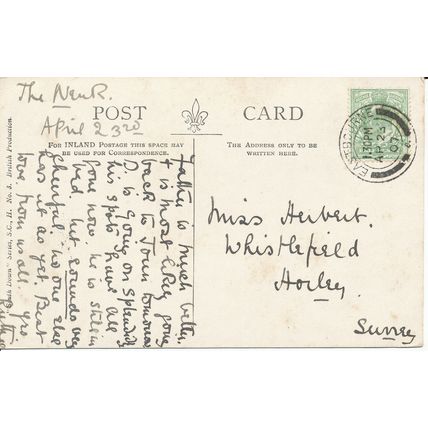 The New R.
April 23rd
POST CARD
FOR INLAND POSTAGE THIS SPACE MAY
BE USED FOR CORRESPONDENCE.
THE ADDRESS ONLY TO BE
WRITTEN HERE.
Father is much better.
& is most likely going
back to Town tomorrow
D. is going on splendidly
his spots have all
gone now. he is still in
bed but sounds very
cheerful. no one else
has it as yet. Best
love from us all. Yrs
"South Down" Series, S.C., II. No. 3. British Production.
EASTBOURNE
1.30PM
AP 23
07
Miss Herbert.
Whistlefield
Horley.
Surrey